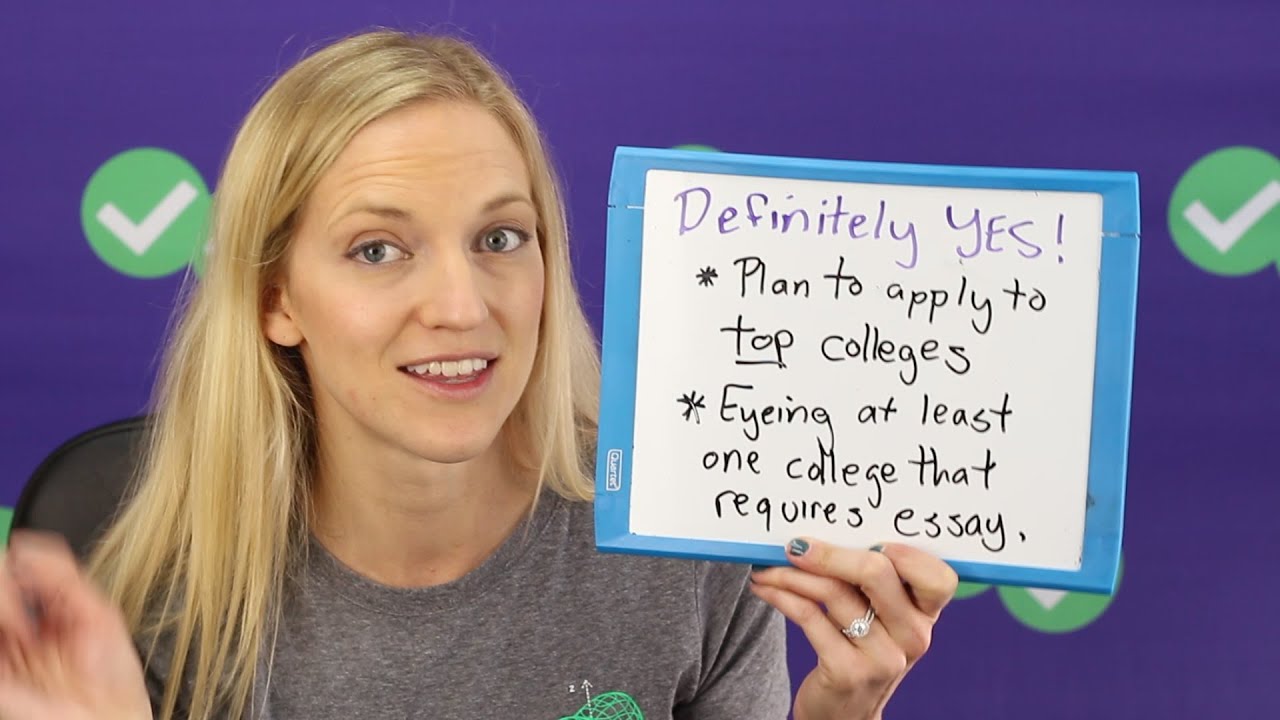 Definitely YES!
* Plan to apply to
top colleges
* Eyeing at least
one college that
requires essay.
Quartet
z